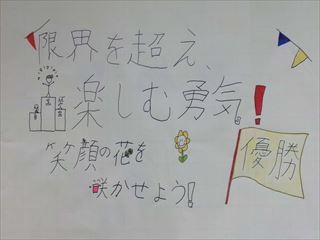 限界を超え、
楽しむ勇気!
笑顔の花を
咲かせよう!
優勝